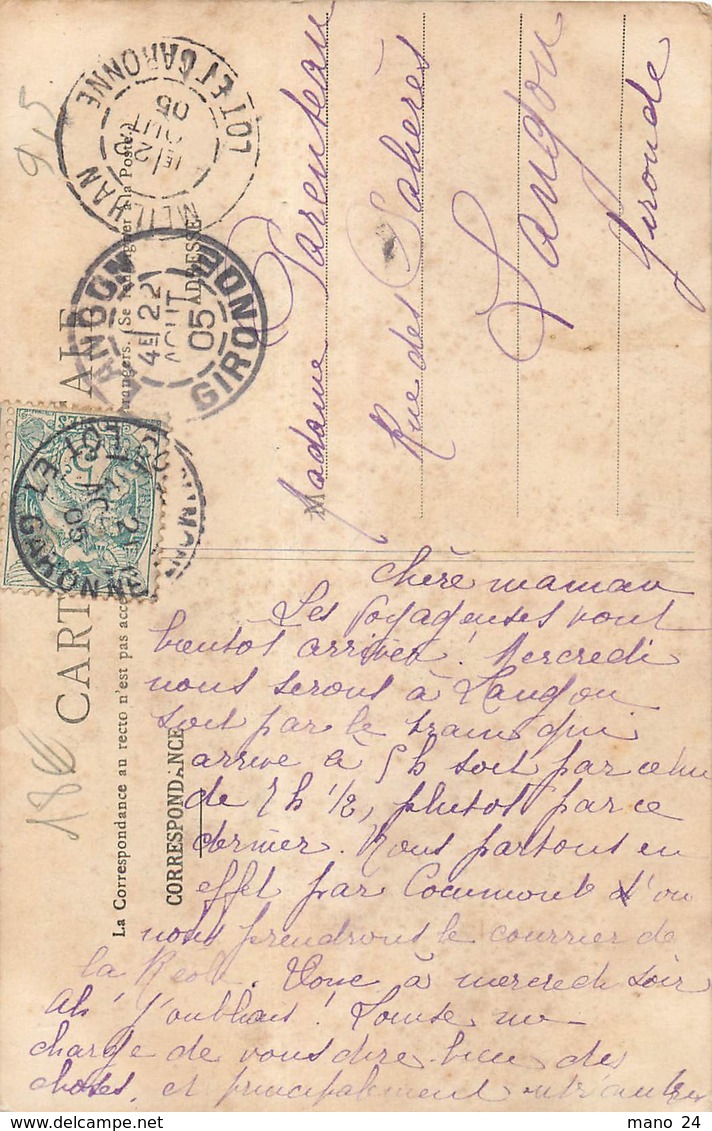 CARTE POSTALE
La Correspondance au recto n'est pas acceptée
étrangers. (Se renseigner à la Poste.)
CORRESPONDANCE
ADRESSE
MEILHAN
LOT ET GARONNE
AOUT
05
LANGON
4E/22
AOUT
05
GIRONDE
LOT ET GARONNE
05
915
18€
Madame Parenteau
Rue des Salières
Langon
Gironde
chère maman
Les voyageuses vont
bientot arriver! Mercredi
nous serons à Langon
soit par le train qui
arrive à 5h soit par celui
de 7 h 1/2, plutot par ce
dernier. Nous partons en
effet par Cocumont d'ou
nous prendrons le courrier de
la Reole. Donc à mercredi soir
Ah! j'oubliais! Louise me
charge de vous dire bien des
choses, et principalement
mano 24